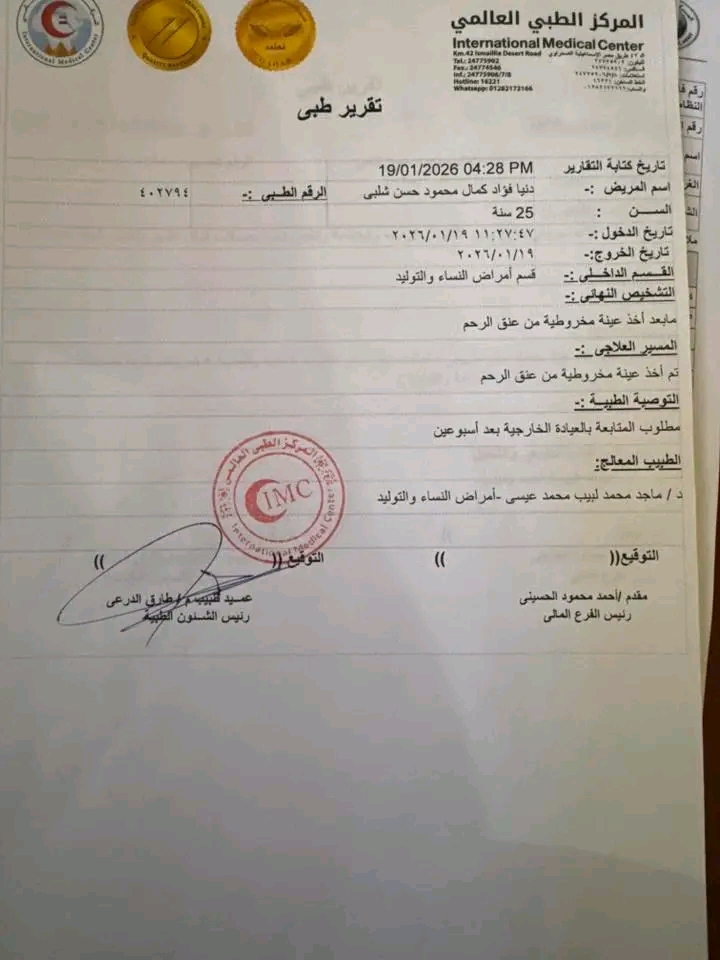 المركز الطبي العالمي
International Medical Center
Km.42 Ismaillia Desert Road
Tel.: 24775992
Fax.: 24774546
Inf.: 24775906/7/8
Hotline: 16221
Whatsapp: 01282172166
تقرير طبى
تاريخ كتابة التقارير 19/01/2026 04:28 PM
اسم المريض :- دنيا فؤاد كمال محمود حسن شلبى الرقم الطبى :- ٤٠٢٧٩٤
الســـن : 25 سنة
تاريخ الدخول :- ٢٠٢٦/٠١/١٩ ١١:٢٧:٤٧
تاريخ الخروج:- ٢٠٢٦/٠١/١٩
القـسـم الداخـلى :- قسم أمراض النساء والتوليد
التشخيص النهائى :-
مابعد أخذ عينة مخروطية من عنق الرحم
المسير العلاجى :-
تم أخذ عينة مخروطية من عنق الرحم
التوصية الطبيـة :-
مطلوب المتابعة بالعيادة الخارجية بعد أسبوعين
الطبيب المعالج:
د / ماجد محمد لبيب محمد عيسى -أمراض النساء والتوليد
المركز الطبي العالمي
IMC
International Medical Center
التوقيع(( )) التوقيع(( ))
مقدم /أحمد محمود الحسينى عمـيد طبيب م / طارق الدرعى
رئيس الفرع المالى رئيس الشـئون الطبية